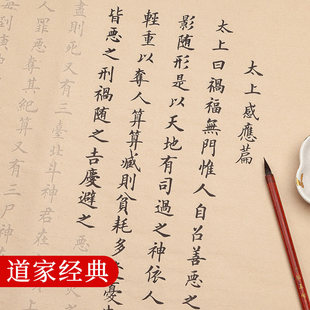 太上感應篇
太上曰禍福無門惟人自召善惡之
影隨形是以天地有司過之神依人
輕重以奪人算算減則貧耗多憂
皆惡之刑禍隨之吉慶避之
盡則死又有三臺北斗神君在
人罪惡奪其紀算又有三尸神
每到庚
道家经典